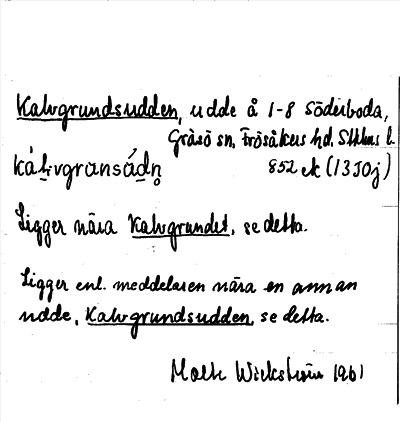 Kalvgrundsudden, udde å 1-8 Söderboda,
Gräsö sn, Frösåkers hd, Sthlms l.
kálvgrunsùdn 852 ek (13 SO j)
Ligger nära Kalvgrundet, se detta.
Ligger enl. meddelaren nära en annan
udde, Kalvgrundsudden, se detta.
Malte Wickström 1961